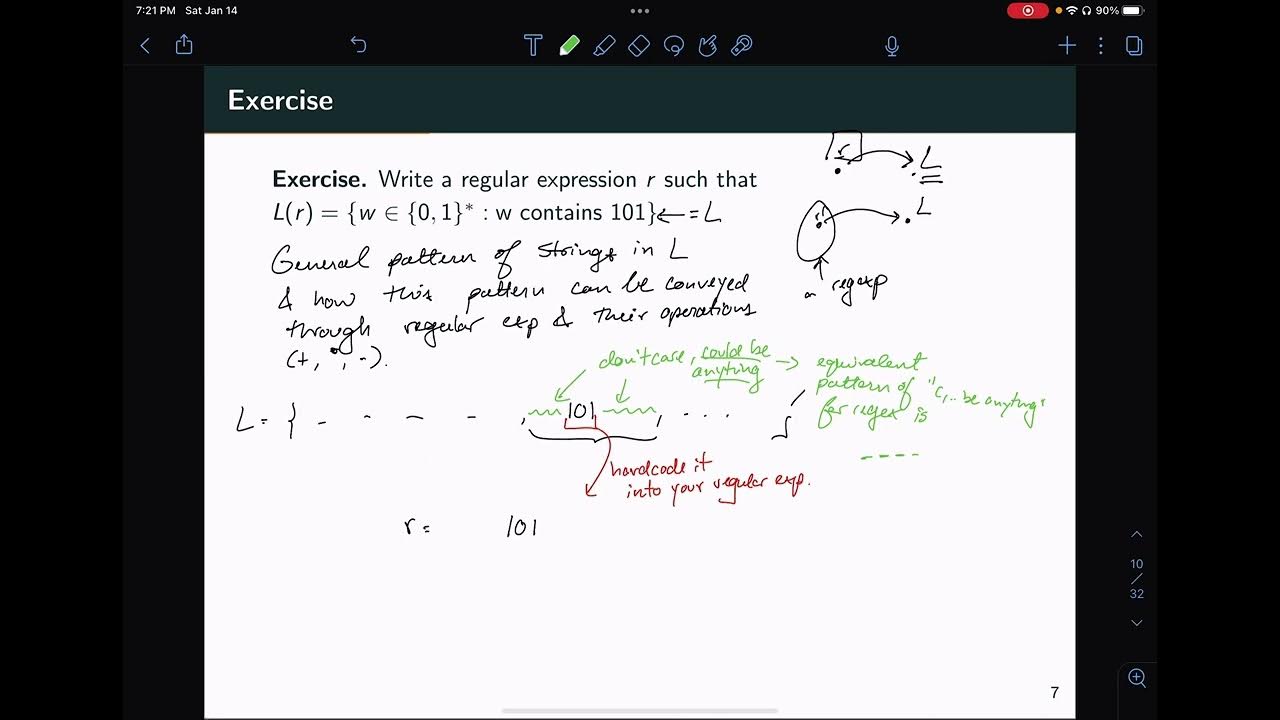 7:21 PM Sat Jan 14
90%
Exercise
Exercise. Write a regular expression r such that
L(r) = {w ∈ {0, 1}* : w contains 101} ← = L
r L
r L
a regexp
General pattern of strings in L
& how this pattern can be conveyed
through regular exp & their operations
(+, *, ·).
don't care, could be
anything → equivalent
pattern of "c... be anything"
for regex is
----
L = { - - - - , 101 , . . . }
hardcode it
into your regular exp.
r = 101
10
/
32
7